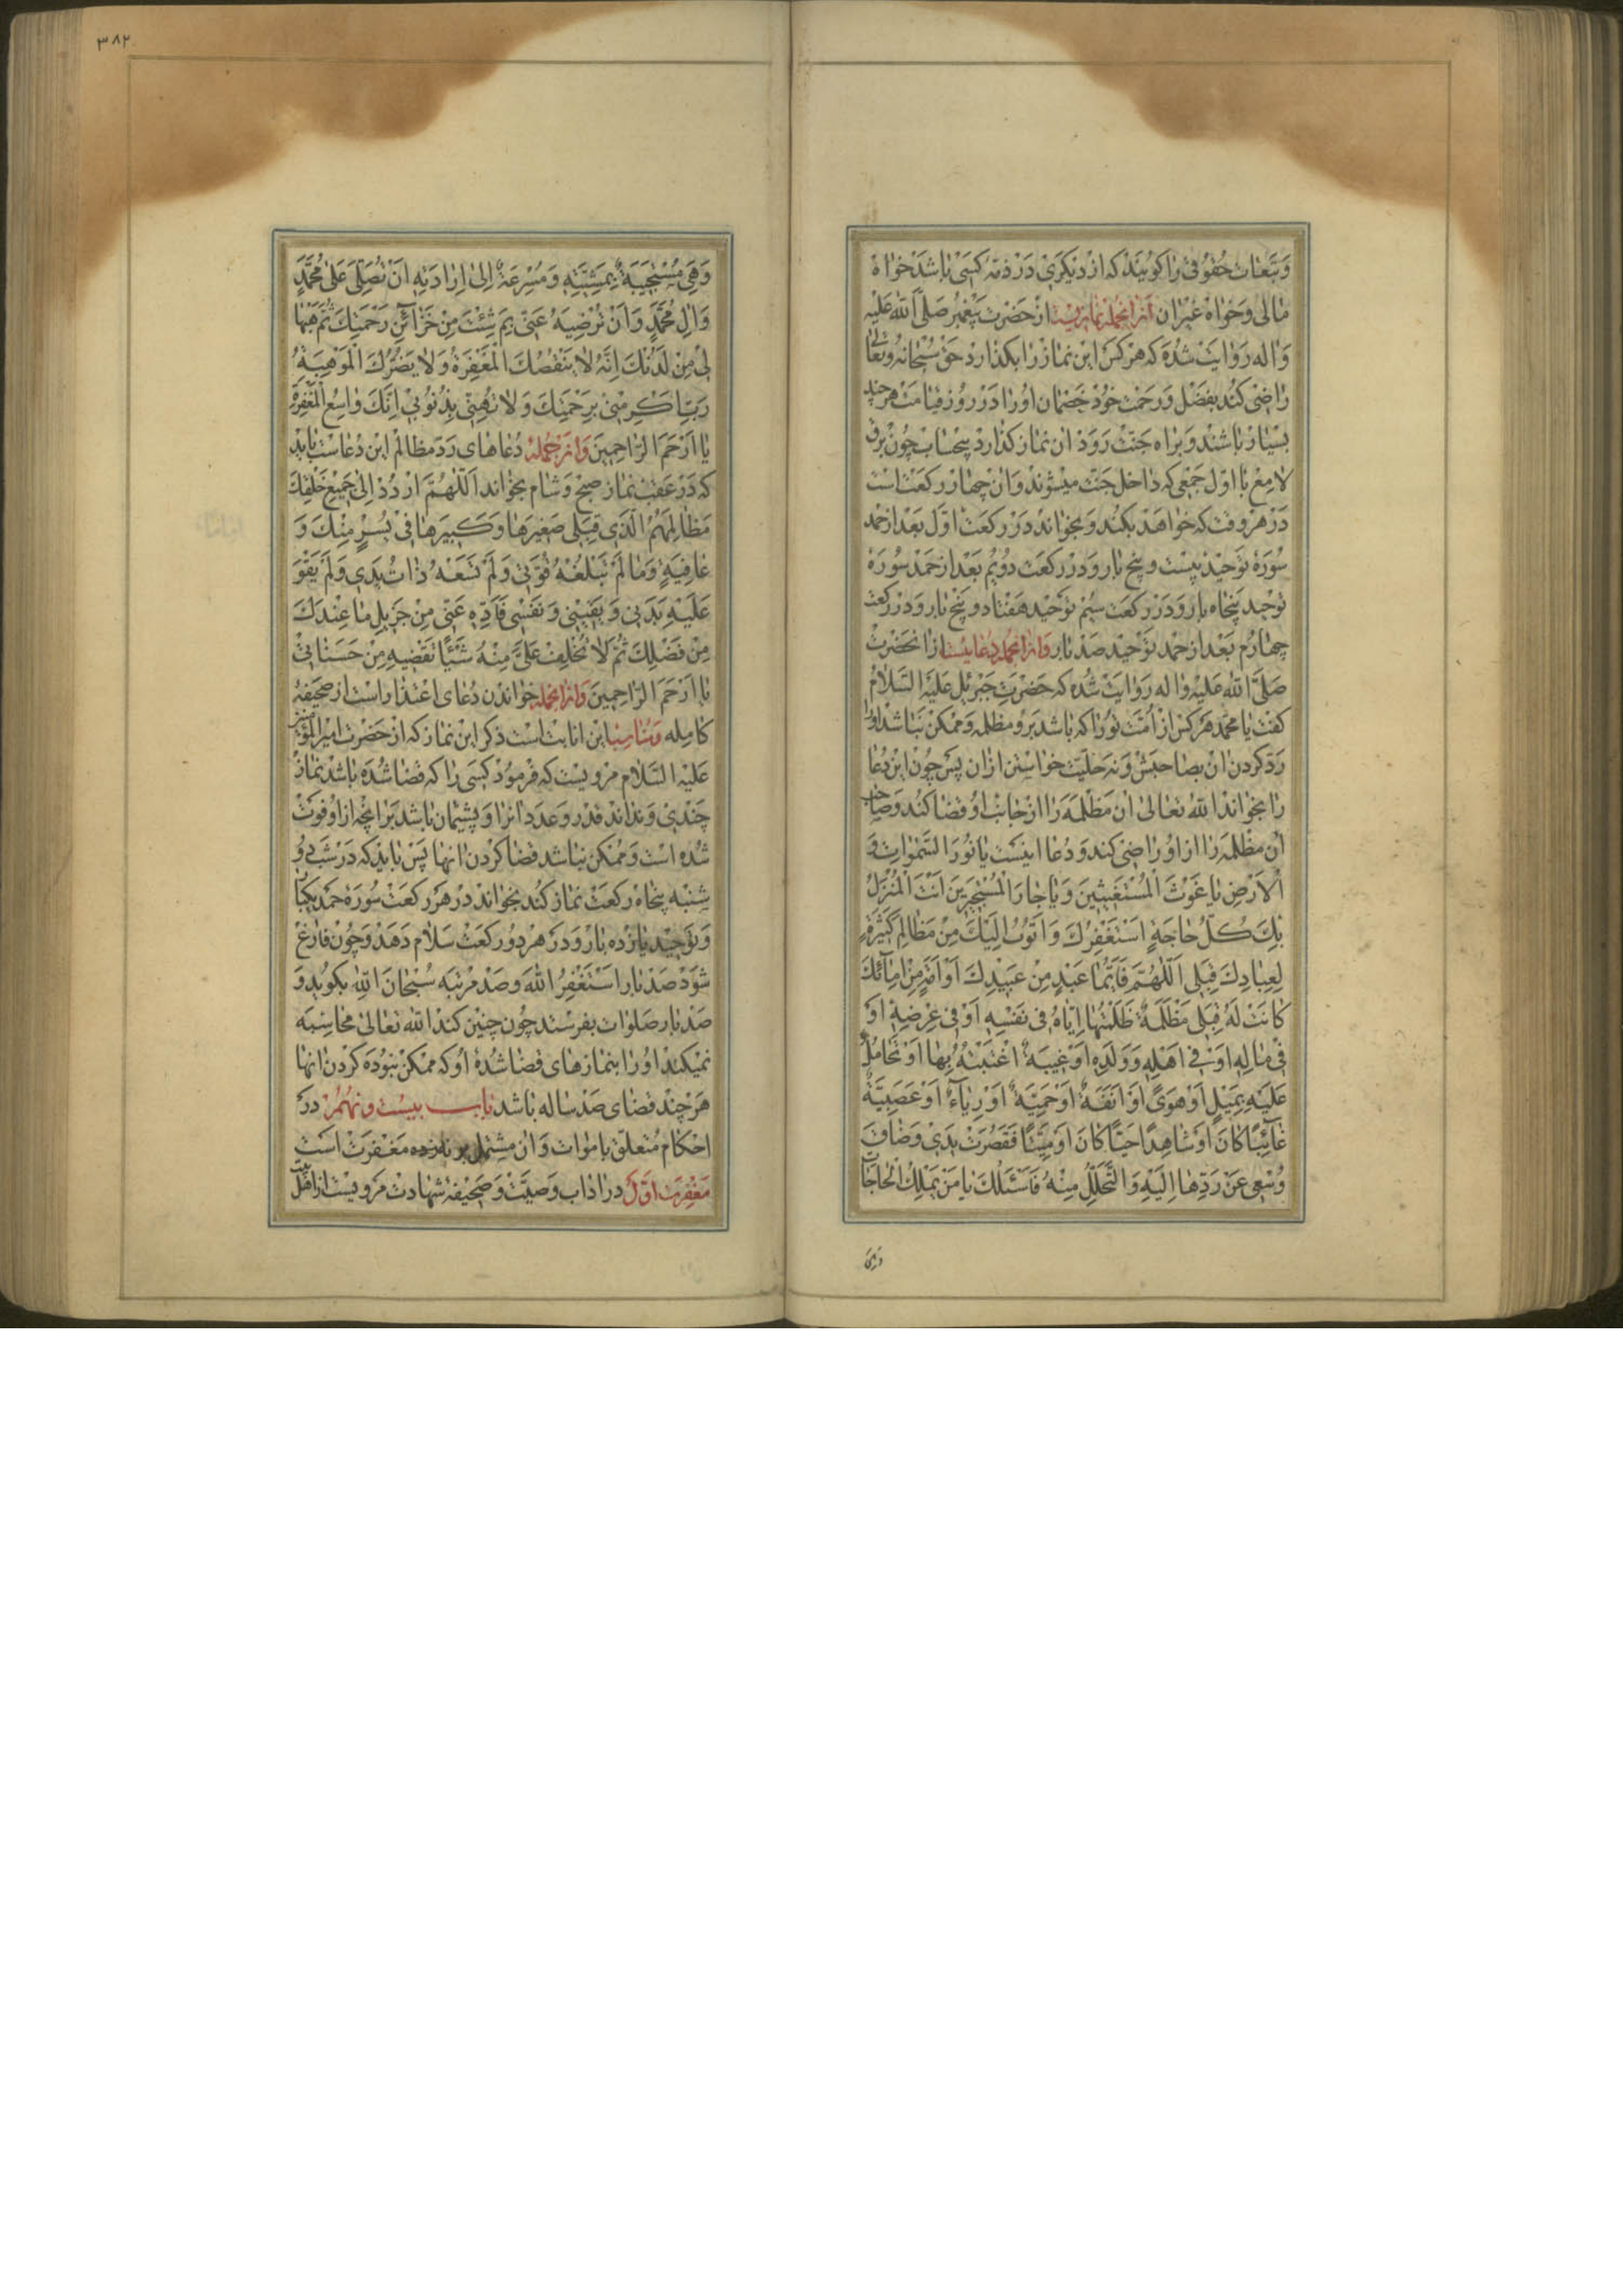 وتبعات حقوقی را کویند که از دیکری در ذمه کسی باشد خواه
مالی وخواه غیر ان از انجمله نمازیست از حضرت پیغمبر صلی الله علیه
واله روایت شده که هر کس این نماز را بکذارد حق سبحانه وتعالی
راضی کند بفضل ورحمت خود خصمان او را در روز قیامت هر چند
بسیار باشند وبراه جنت رود ان نماز کذارد بیحساب چون برق
لامع با اول جمعی که داخل جنت میشوند وان چهار رکعت است
در هر وقت که خواهد بکند وبخواند در رکعت اول بعد از حمد
سورۀ توحید بیست وپنج بار ودر رکعت دویم بعد از حمد سوره
توحید پنجاه بار ودر رکعت سیم توحید هفتاد وپنج بار ودر رکعت
چهارم بعد از حمد توحید صد بار وازانجمله دعائیست از انحضرت
صلی الله علیه واله روایت شده که حضرت جبرئیل علیه السلام
کفت یا محمد هر کس از امت تو را که باشد برو مظلمه وممکن نباشد او را
رد کردن ان بصاحبش ونه حلیت خواستن ازان پس چون این دعا
را بخواند الله تعالی ان مظلمه را از جانب او قضا کند وصاحب
ان مظلمه را از او راضی کند ودعا اینست یا نور السموات و
الارض یا غوث المستغیثین ویا جار المستجیرین انت المنزل
بك كل حاجة استغفرك واتوب اليك من مظالم كثيرة
لعبادك قبلي اللهم فايما عبد من عبيدك او امة من امائك
كانت له قبلي مظلمة ظلمتها اياه في نفسه او في عرضه او
في ماله او في اهله وولده او غيبة اغتبته بها او تحامل
عليه بميل او هوى او انفة او حمية او رياء او عصبية
غائبا كان او شاهدا حيا كان او ميتا فقصرت يدي وضاق
وسعي عن ردها اليه والتحلل منه فاسئلك يا من يملك الحاجات
وهی
٣٨٢
وهي مستجيبة بمشيته ومسرعة الى ارادته ان تصلي على محمد
وال محمد وان ترضيه عني بم شئت من خزائن رحمتك ثم هبها
لي من لدنك انه لا ينقصك المغفرة ولا يضرك الموهبة
رب اكرمني برحمتك ولا تهني بذنوبي انك واسع المغفرة
يا ارحم الراحمين وازجمله دعاهای رد مظالم این دعاست باید
که در عقب نماز صبح وشام بخواند اللهم اردد الى جميع خلقك
مظالمهم الذي قبلي صغيرها وكبيرها في يسر منك و
عافية وما لم تبلغه قوتي ولم تسعه ذات يدي ولم يقو
عليه بدني ويقيني ونفسي فاده عني من جزيل ما عندك
من فضلك ثم لا تخلف علي منه شيئا تقضيه من حسناتي
يا ارحم الراحمين وازانجمله خواندن دعای اعتذار است از صحیفه
کامله ومناسب این انابت است ذکر این نماز که از حضرت امیر المؤمنین
علیه السلام مرویست که فرمود کسی را که قضا شده باشد نماز
چندی ونداند قدر وعدد انرا وپشیمان باشد بر انچه از او فوت
شده است وممکن نباشد قضا کردن انها پس باید که در شب دو
شنبه پنجاه رکعت نماز کند بخواند در هر رکعت سوره حمد یکبار
وتوحید یازده بار ودر هر دو رکعت سلام دهد وچون فارغ
شود صد بار استغفر الله وصد مرتبه سبحان الله بکوید و
صد بار صلوات بفرستد چون چنین کند الله تعالی محاسبه
نمیکند او را بنمازهای قضا شدۀ او که ممکن نبوده کردن انها
هر چند قضای صد ساله باشد باب بیست ونهم در
احکام متعلق باموات وان مشتمل بر پانزده مغفرت است
مغفرت اول در اداب وصیت وصحیفه شهادت مرویست از اهل بیت